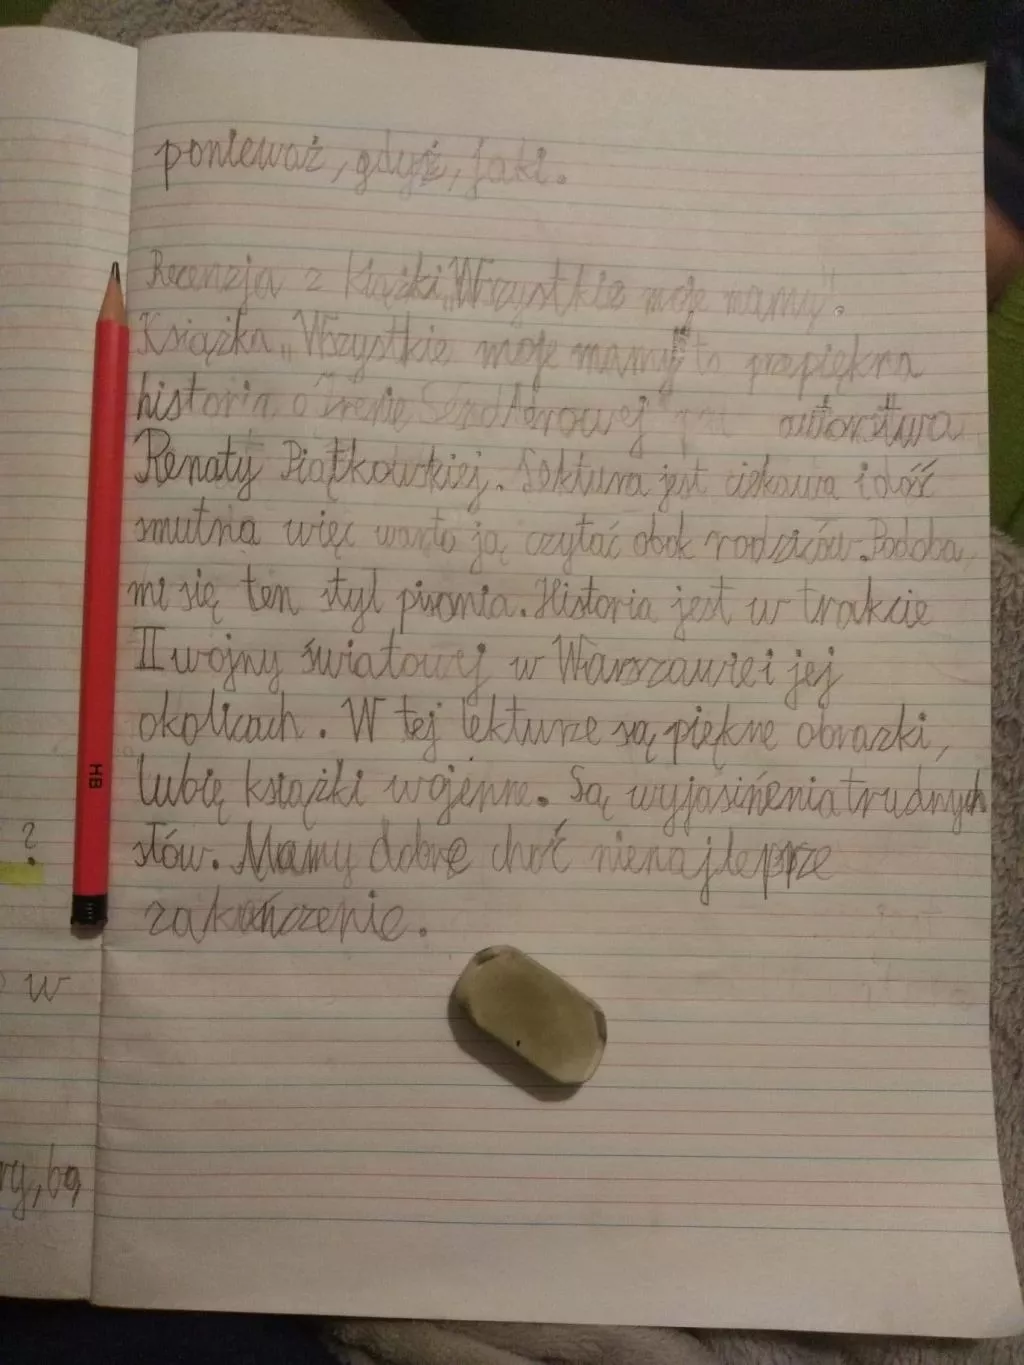 ponieważ, gdyż, jaki.
Recenzja z kiążki „Wszystkie moje mamy".
Książka „Wszystkie moje mamy" to przepiękna
historia o Irenie Sendlerowej autorstwa
Renaty Piątkowskiej. Lektura jest ciekawa i dość
smutna więc warto ją czytać obok rodziców. Podoba
mi się ten styl pisania. Historia jest w trakcie
II wojny światowej w Warszawie i jej
okolicach. W tej lekturze są piękne obrazki,
lubię książki wojenne. Są wyjaśinénia trudnych
słów. Mamy dobre choć nienajlepsze
zakończenie.
?
w
HB